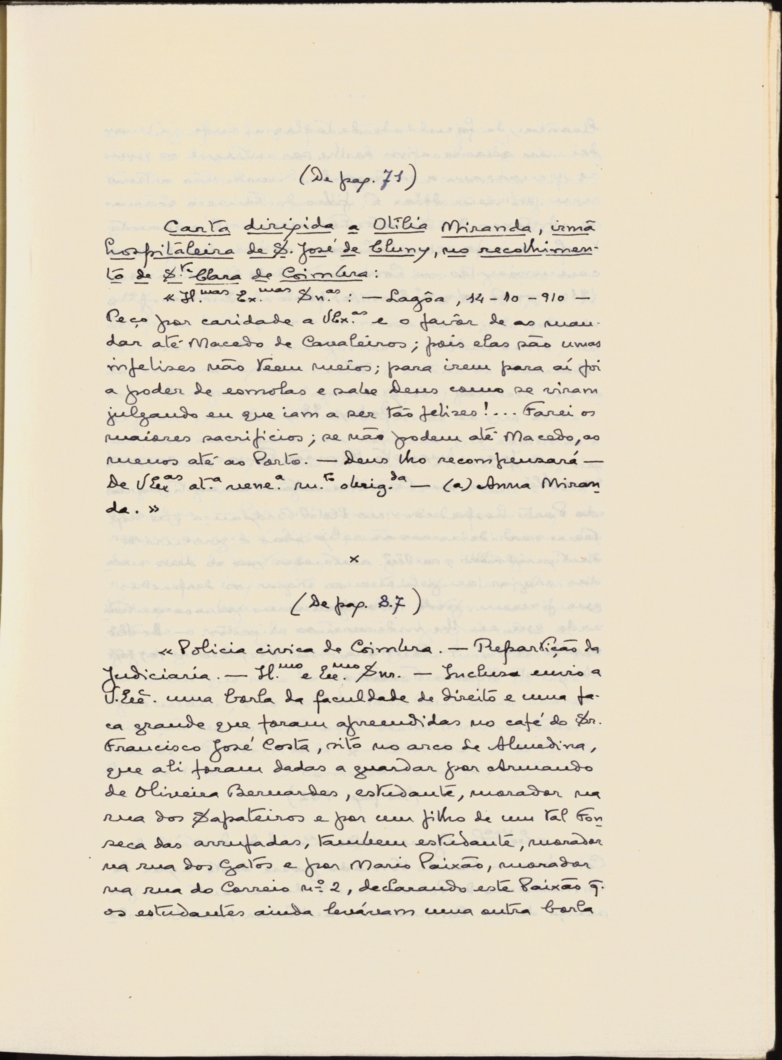 (De pag. 71)
Carta dirigida a Otília Miranda, irmã
hospitaleira de S. José de Cluny, no recolhimen-
to de S.ta Clara de Coimbra:
«Il.mas Ex.mas Sn.as: — Lagôa, 14-10-910 —
Peço por caridade a VEx.as e o favôr de as man-
dar até Macedo de Cavaleiros; pois elas são umas
infelises não teem meios; para irem para aí foi
a poder de esmolas e sabe Deus como se viram
julgando eu que iam a ser tão felises!... Farei os
maiores sacrifícios; se não podem até Macedo, ao
menos até ao Porto. — Deus lho recompensará —
De VEx.as at.a vene.a m.to obrig.da — (a) Anna Miran-
da.»
×
(De pag. 87)
«Policia civica de Coimbra. — Repartição da
Judiciaria. — Il.mo e Ex.mo Snr. — Incluso envio a
V. Exª. uma borla da faculdade de direito e uma fa-
ca grande que foram apreendidas no café do Sr.
Francisco José Costa, sito no arco de Almedina,
que ali foram dadas a guardar por Armando
de Oliveira Bernardes, estudante, morador na
rua dos Sapateiros e por um filho de um tal Fon-
seca das arrufadas, tambem estudante, morador
na rua dos Gatos e por Mario Paixão, morador
na rua do Correio nº 2, declarando este Paixão q̃.
os estudantes ainda levávam uma outra borla